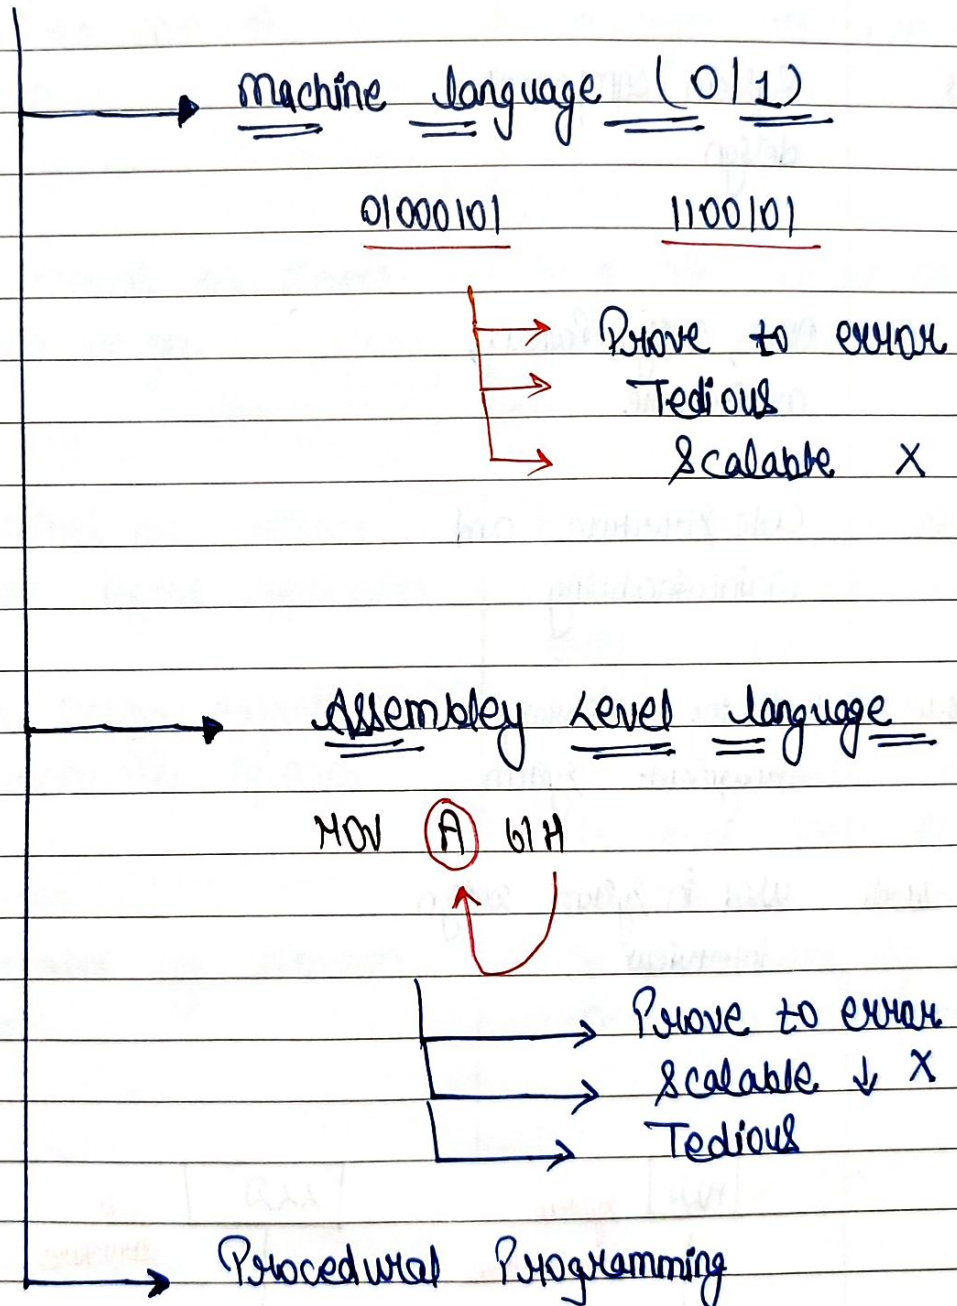 Machine language (0/1)
01000101 1100101
Prove to error
Tedious
Scalable X
Assembley Level language
MOV A 61H
Prove to error
Scalable ↓ X
Tedious
Procedural Programming